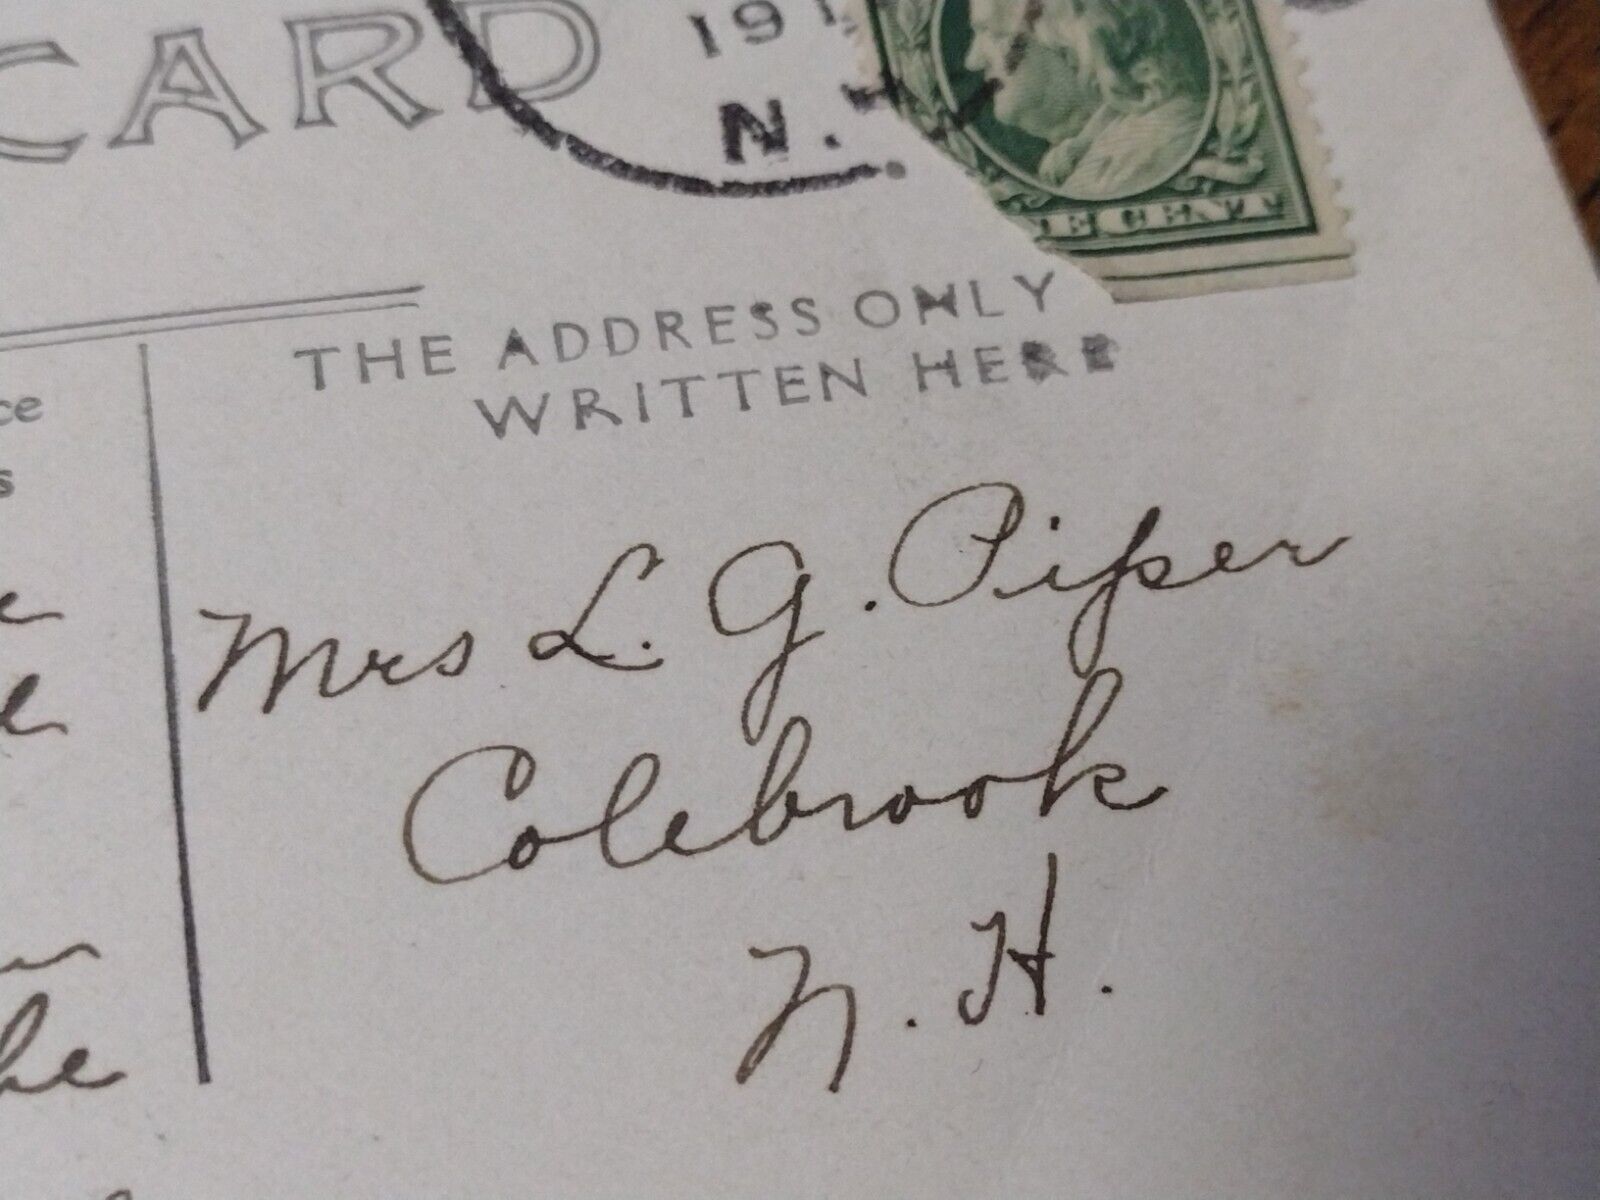 CARD
191
N.
CENT
THE ADDRESS ONLY
WRITTEN HERE
Mrs L. G. Piper
Colebrook
N. H.